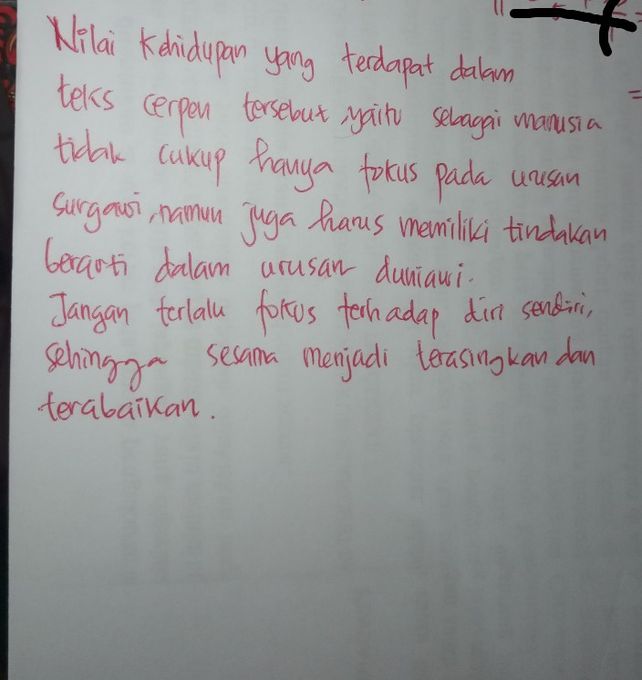 Nilai Kehidupan yang terdapat dalam
teks cerpen tersebut, yaitu sebagai manusia
tidak cukup hanya fokus pada urusan
surgawi, namun juga harus memiliki tindakan
berarti dalam urusan duniawi.
Jangan terlalu fokus terhadap diri sendiri,
sehingga sesama menjadi terasingkan dan
terabaikan.